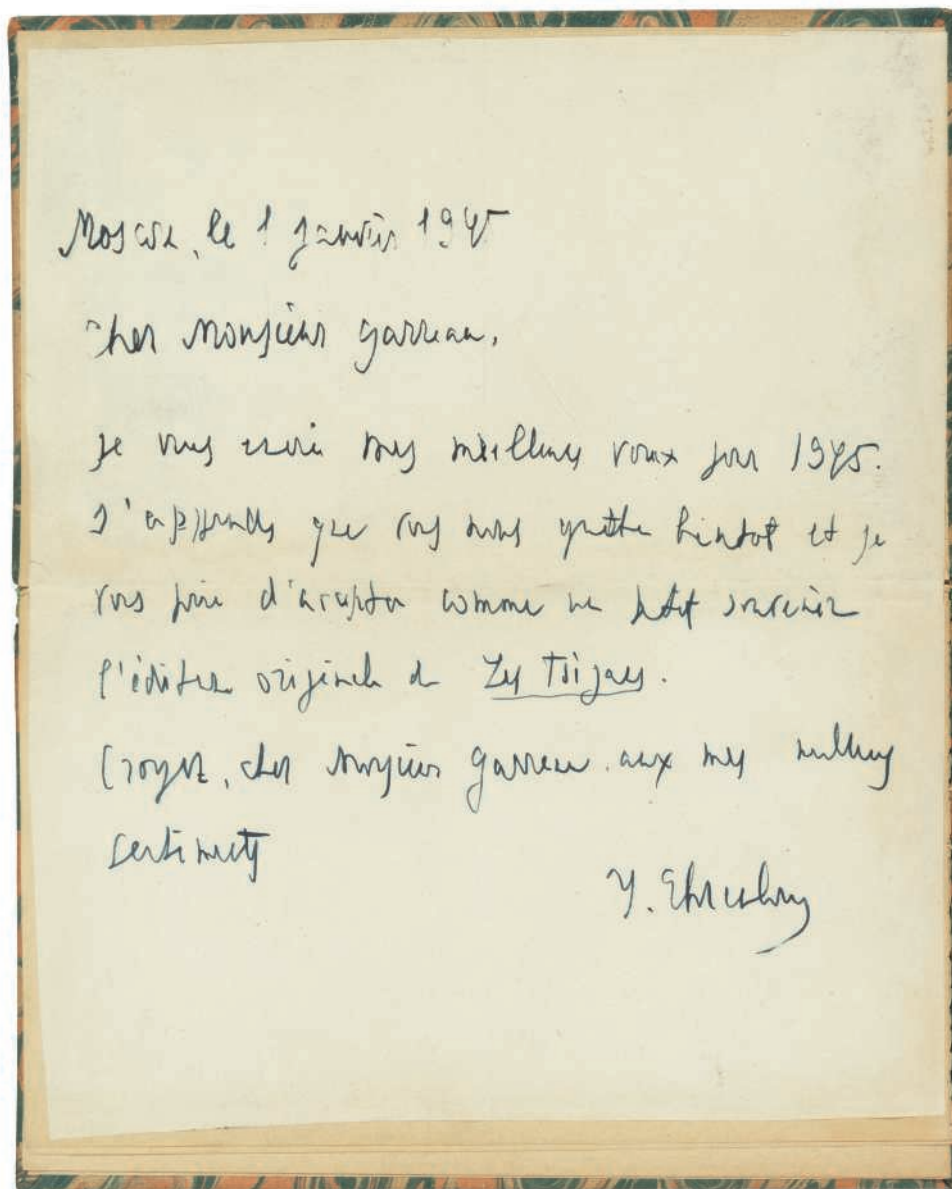 Moscou, le 1 janvier 1945
Cher Monsieur Garreau,
je vous envoie mes meilleurs voeux pour 1945.
J'apprends que vous nous quittez bientot et je
vous prie d'accepter comme un petit souvenir
l'édition originale de Les Tsiganes.
Croyez, cher Monsieur Garreau, aux mes meilleurs
sentiments
I. Ehrenbourg